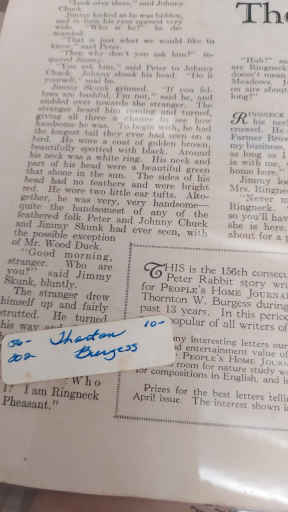 "Look over there," said Johnny
Chuck.
Jimmy looked as he was bidden,
and in turn his eyes opened very
wide. "Who is he?" he de-
manded.
"That is just what we would like to
know," said Peter.
"Then why don't you ask him?" in-
quired Jimmy.
"You ask him," said Peter to Johnny
Chuck. Johnny shook his head. "Do it
yourself," said he.
Jimmy Skunk grinned. "If you fel-
lows are bashful, I'm not," said he, and
ambled over towards the stranger. The
stranger heard him coming and turned,
giving all three a chance to see how
handsome he was. To begin with, he had
the longest tail they ever had seen on a
bird. He wore a coat of golden brown,
beautifully spotted with black. Around
his neck was a white ring. His neck and
part of his head were a beautiful green
that shone in the sun. The sides of his
head had no feathers and were bright
red. He wore two little ear tufts. Alto-
gether, he was very, very handsome—
quite the handsomest of any of the
feathered folk Peter and Johnny Chuck
and Jimmy Skunk had ever seen, with
the possible exception
of Mr. Wood Duck.
"Good morning,
stranger. Who are
you?" said Jimmy
Skunk, bluntly.
The stranger drew
himself up and fairly
strutted. He turned
his way
Who
I? I am Ringneck
Pheasant."
Thorton 10-
002 Burgess
The
"Huh?"
are Ringneck
doesn't mean
Meadows.
on any about
long?"
RINGNECK
his neck
ruffled. He
Farmer Brown
my business,
so long as I
is with me,
home here."
Jimmy
Mrs. Ringneck
"Never
Ringneck.
so you'll have
she is here.
about for a
THIS is the 156th consec
Peter Rabbit story wr
for PEOPLE'S HOME JOURNAL
Thornton W. Burgess during
past 13 years. In this period
popular of all writers of
ny interesting letters our
d entertainment value of
PEOPLE'S HOME JOURN
room for nature study w
for compositions in English, and i
Prizes for the best letters telli
April issue. The interest shown i